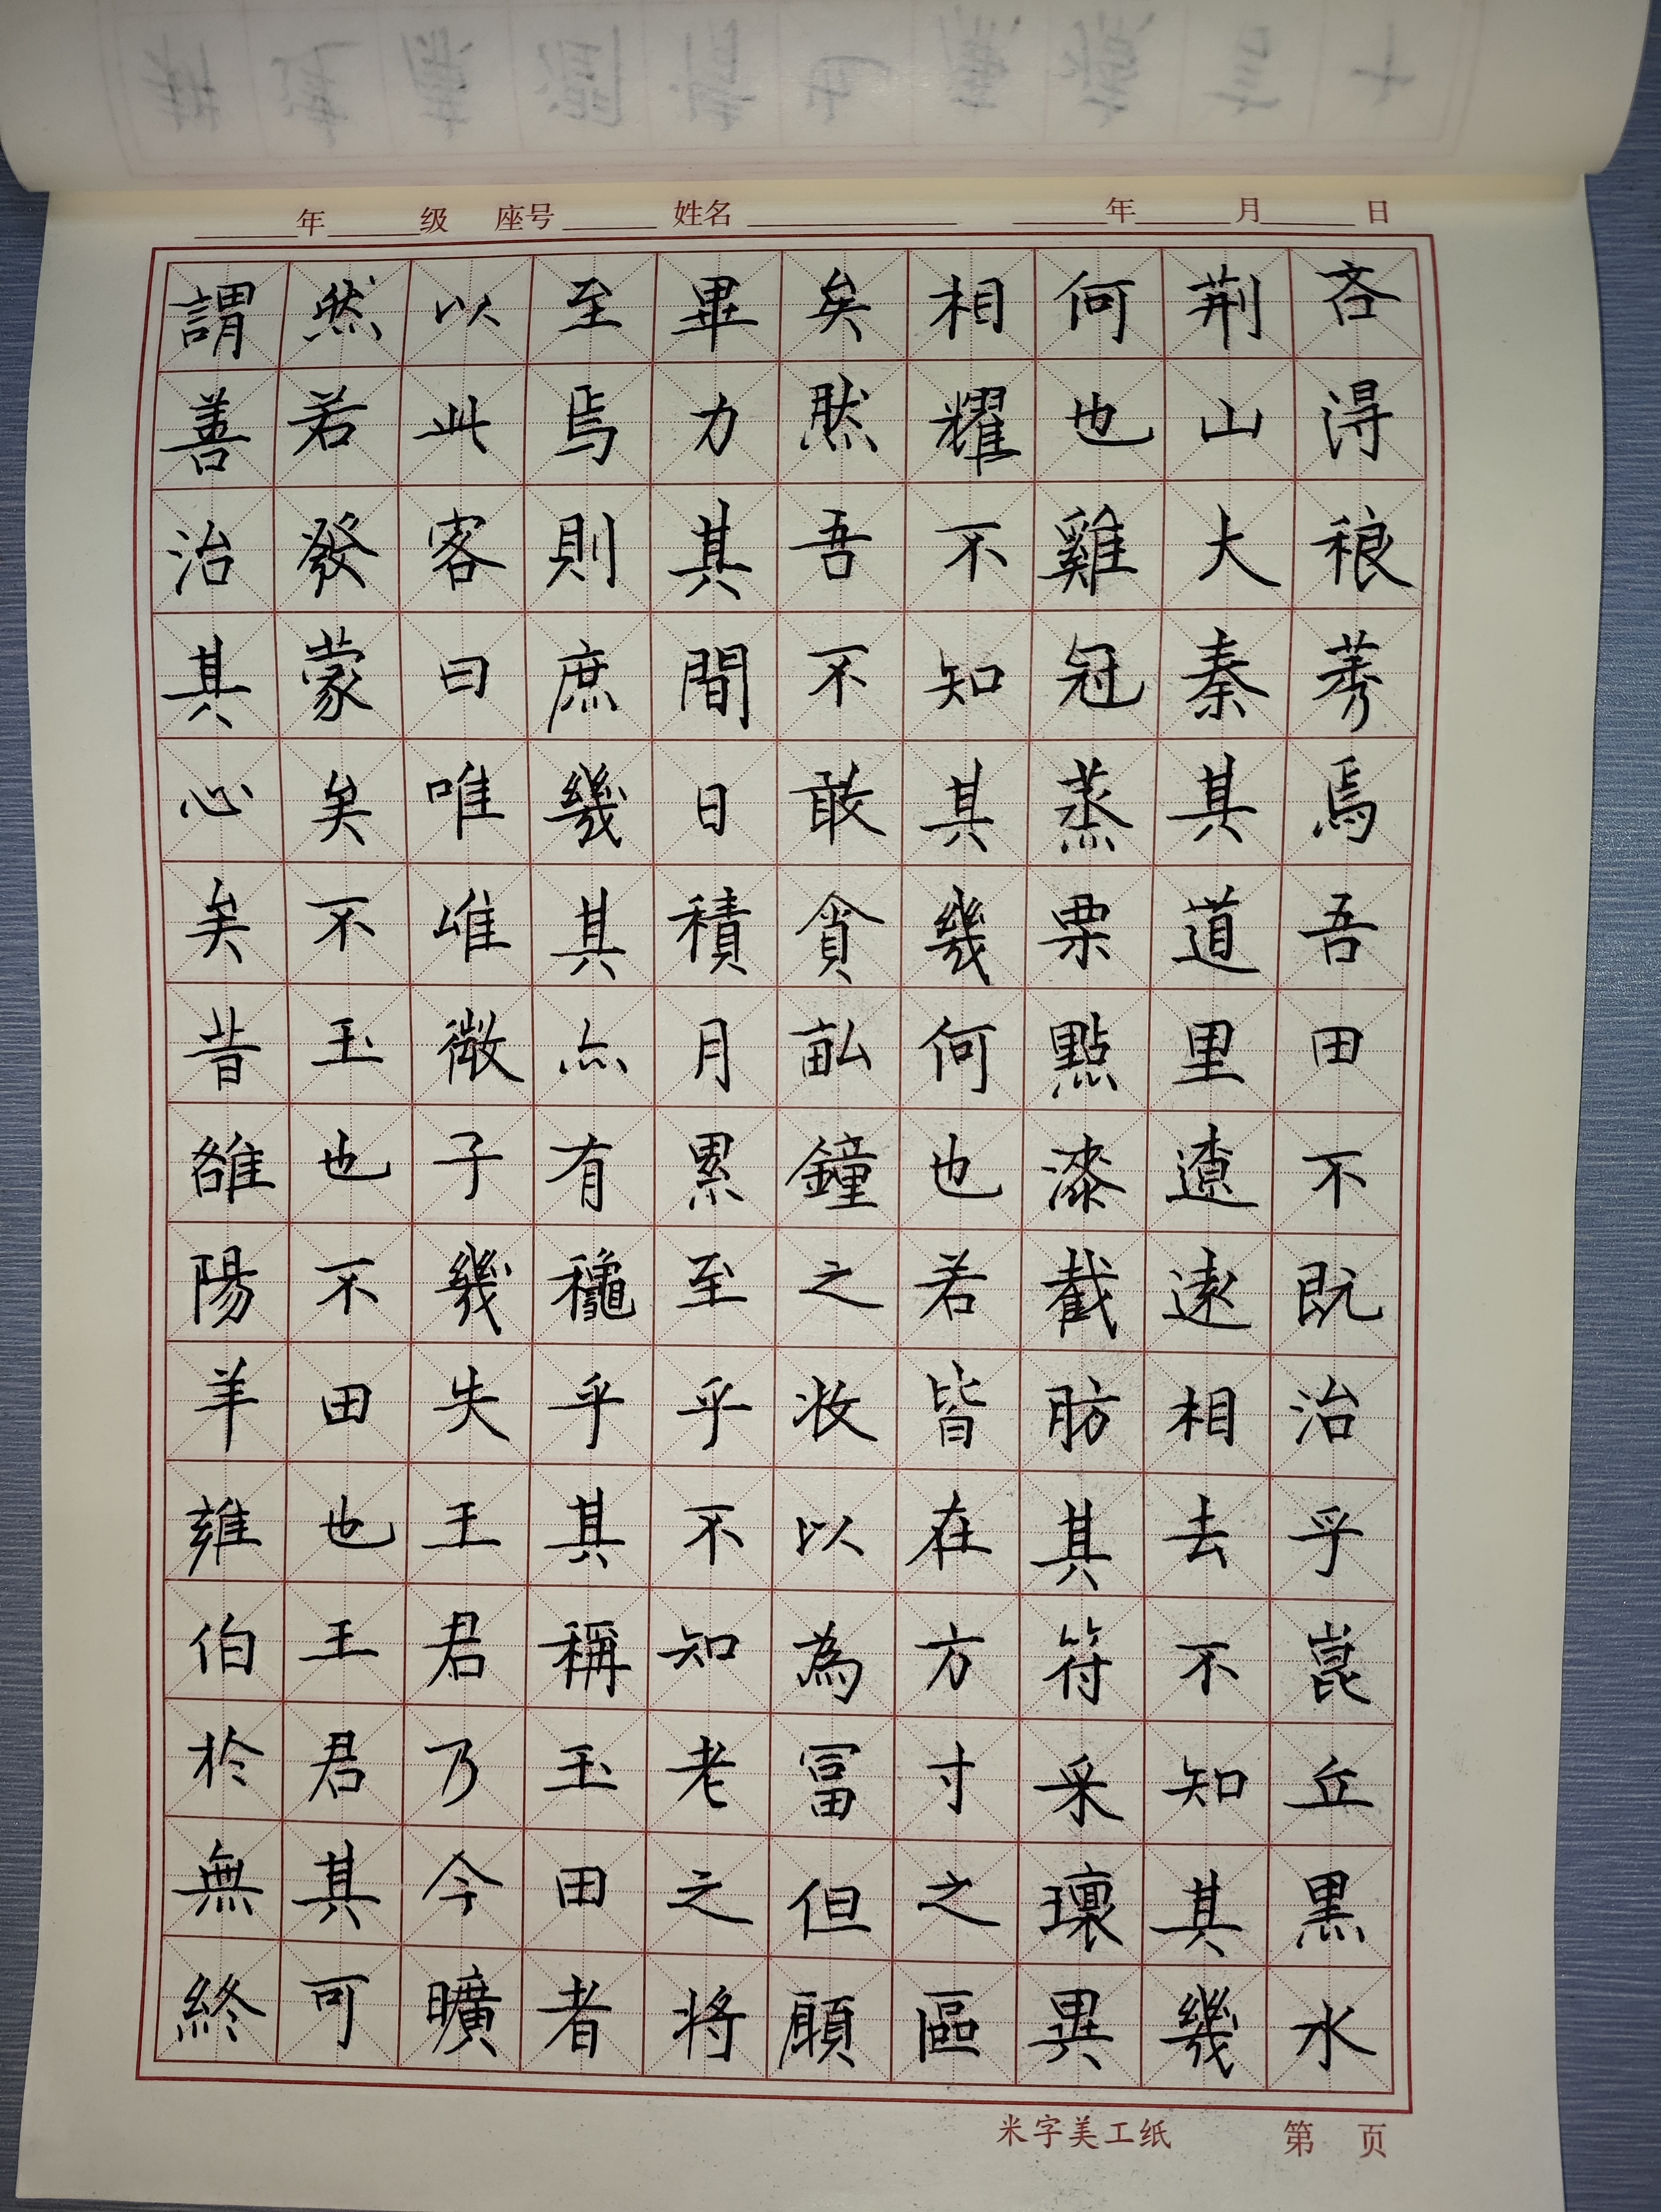 年 级 座号 姓名 年 月 日
吝得稂莠焉吾田不既治乎崑丘黑水
荆山大秦其道里遼遠相去不知其幾
何也雞冠蒸栗點漆截肪其符采瓌異
相耀不知其幾何也若皆在方寸之區
矣然吾不敢貪畝鐘之收以為富但願
畢力其間日積月累至乎不知老之將
至焉則庶幾其亦有龝乎其稱玉田者
以此客曰唯唯微子幾失王君乃今曠
然若發蒙矣不玉也不田也王君其可
謂善治其心矣昔雒陽羊雍伯於無終
米字美工纸 第 页